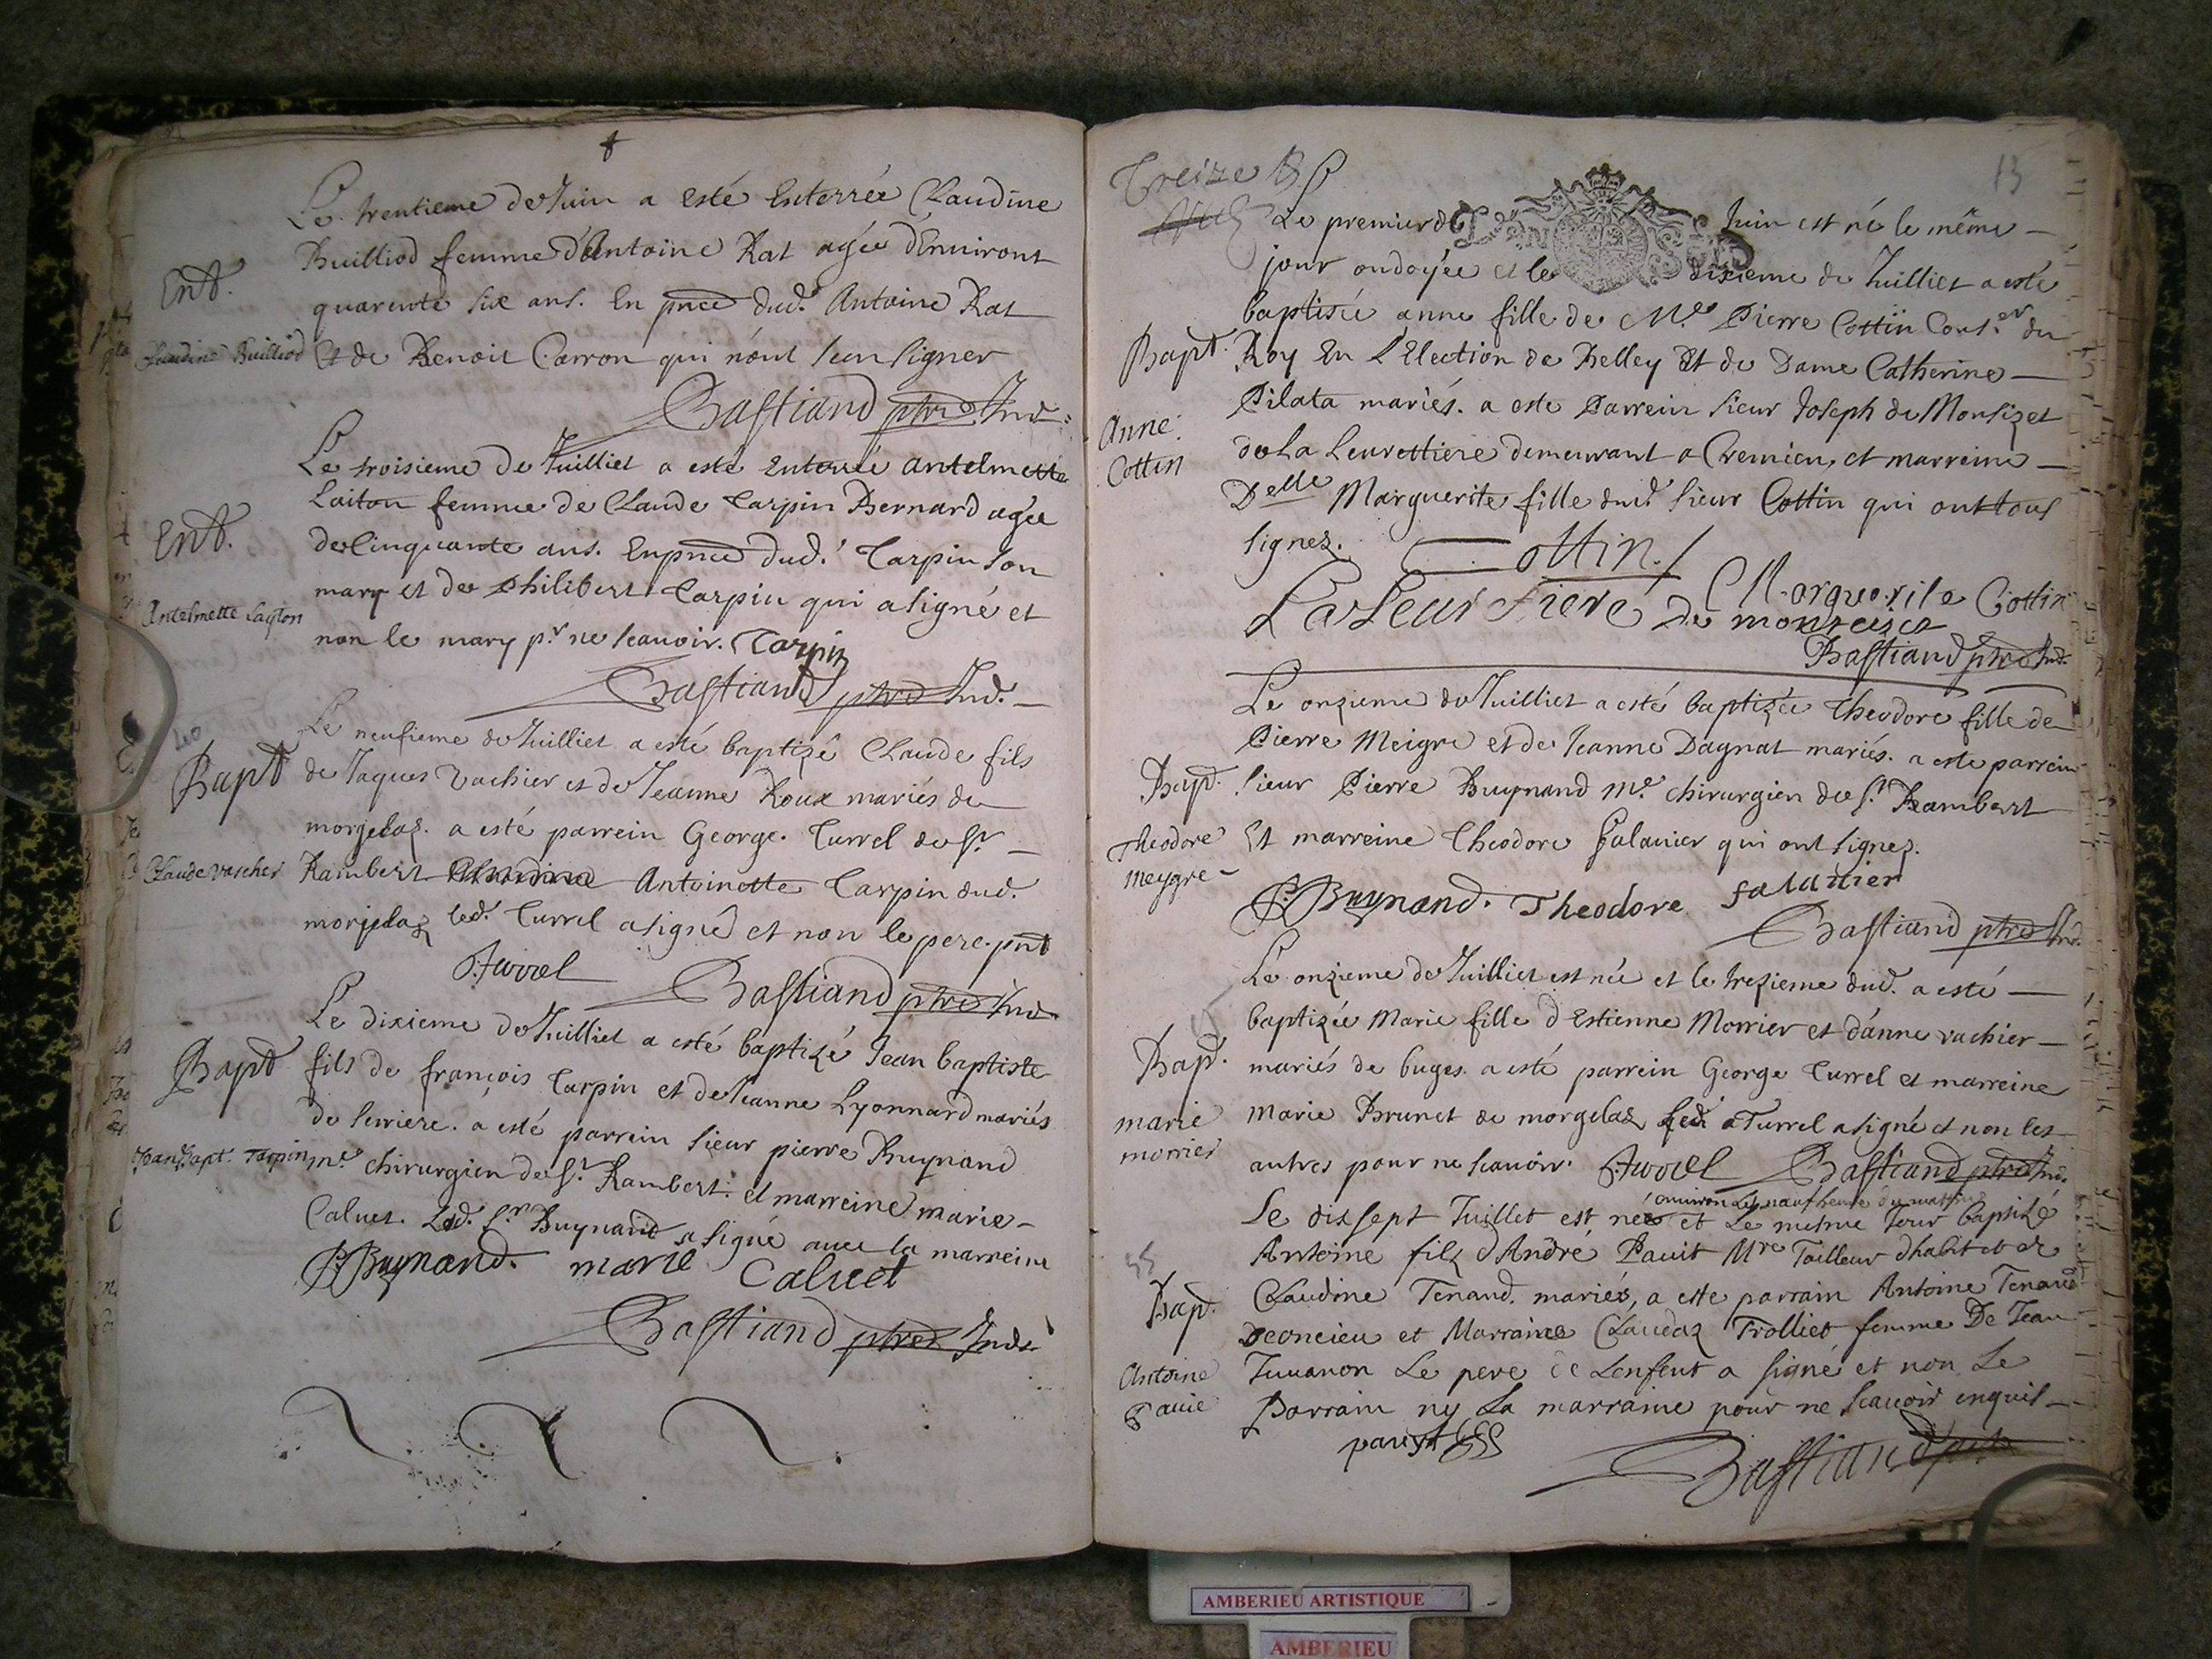 Le trentieme de Juin a esté Enterrée Claudine
Builliod femme d'Antoine Rat agée d'Environt
Ent.
quarente six ans. En pnce dud. Antoine Rat
Claudine Builliod
Et de Benoit Carron qui n'ont sceu signer
Bastiand ptre Ind.
Le troisieme de Juilliet a esté Enterrée Antelmette
Laiton femme de Claude Tarpin Bernard agée
Ent.
de Cinquante ans. En pnce dud. Tarpin son
mary et de Philibert Tarpin qui a signé et
Antelmette Layton
non le mary pr ne scauoir. Tarpin
Bastiand ptre Ind.
Le neufieme de Juilliet a esté baptizé Claude fils
Bapt
de Jaques Vachier et de Jeanne Roux mariés de
morgelaz. a esté parrein George Turrel de St
Claude Vascher
Rambert Antoinette Tarpin dud.
morgelaz led. Turrel a signé et non le pere pnt
Turrel
Bastiand ptre Ind.
Le dixieme de Juilliet a esté baptizé Jean baptiste
Bapt
fils de françois Tarpin et de Jeanne Lyonnard mariés
de serriere. a esté parrein sieur pierre Buynand
Jean Bapt. Tarpin
me chirurgien de St. Rambert. et marreine marie
Caluet. Led. Sr Buynand a signé auec la marreine
P. Buynand. marie Caluet
Bastiand ptre Ind.
Treize
13
Le premier de Juin est né le même
jour ondoyée et le dixieme de Juilliet a esté
baptisée anne fille de Me Pierre Cottin Cons.er du
Bapt.
Roy En L'Election de Belley Et de Dame Catherine
Pilata mariés. a este Parrein sieur Joseph de Monsizet
Anne Cottin
de La Leurettiere demeurant a Cremieu, et marreine
Delle Marguerite fille dud. sieur Cottin qui ont tous
signez.
Cottin
Marguerite Cottin
Bastiand ptre Ind.
Le onzieme de Juilliet a esté baptizée Theodore fille de
Pierre Meigre et de Jeanne Dagnat mariés. a este parrein
Bapt.
sieur Pierre Buynand me. chirurgien de St. Rambert
Theodore Meygre
Et marreine Theodore Falauier qui ont signez.
P. Buynand. Theodore falauier
Bastiand ptre Ind.
Le onzieme de Juilliet est née et le trezieme dud. a esté
baptizée Marie fille d'Estienne Morrier et d'anne vachier
Bapt.
mariés de buges. a esté parrein George Turrel et marreine
marie morrier
Marie Brunet de morgelaz led. Turrel a signé et non les
autres pour ne scauoir. Turrel Bastiand ptre Ind.
enuiron les neuf heure du mattin
Le dix sept Juillet est née et Le mesme Jour baptizé
Antoine filz d'André Pauit Mre Tailleur d'habit et de
Bapt.
Claudine Tenand. mariés, a este parrain Antoine Tenand
Doncieu et Marraine Claudaz Trolliet femme De Jean
Antoine Pauie
Juuanon Le pere de Lenfent a signé et non Le
Parrain ny La marraine pour ne scauoir enquis
Bastiand
AMBERIEU ARTISTIQUE
AMBERIEU